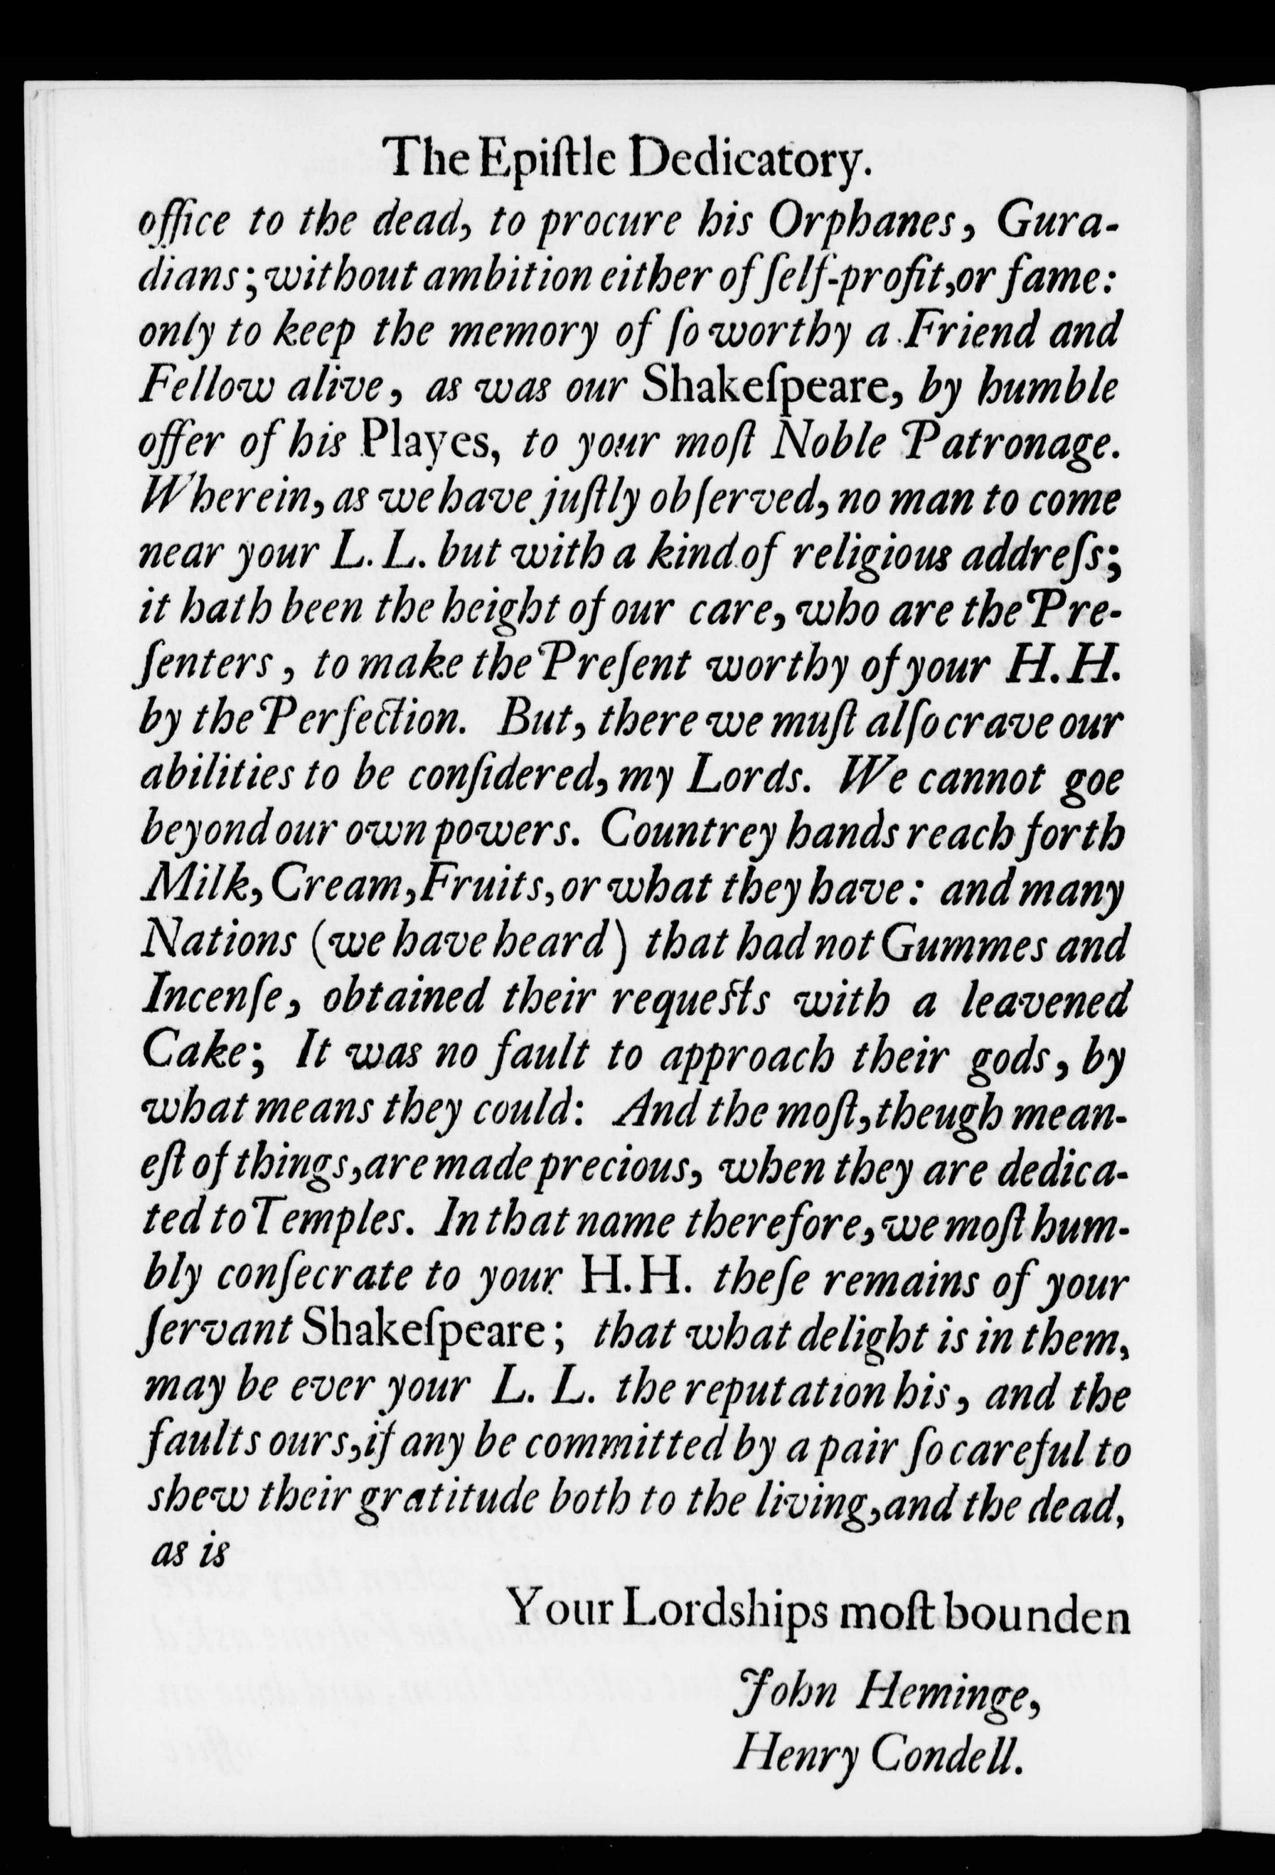 The Epiſtle Dedicatory.
office to the dead, to procure his Orphanes, Gura-
dians; without ambition either of ſelf-profit, or fame:
only to keep the memory of ſo worthy a Friend and
Fellow alive, as was our Shakeſpeare, by humble
offer of his Playes, to your moſt Noble Patronage.
Wherein, as we have juſtly obſerved, no man to come
near your L. L. but with a kind of religious addreſs;
it hath been the height of our care, who are the Pre-
ſenters, to make the Preſent worthy of your H. H.
by the Perfection. But, there we muſt alſo crave our
abilities to be conſidered, my Lords. We cannot goe
beyond our own powers. Countrey hands reach forth
Milk, Cream, Fruits, or what they have: and many
Nations (we have heard) that had not Gummes and
Incenſe, obtained their requeſts with a leavened
Cake; It was no fault to approach their gods, by
what means they could: And the moſt, theugh mean-
eſt of things, are made precious, when they are dedica-
ted to Temples. In that name therefore, we moſt hum-
bly conſecrate to your H. H. theſe remains of your
ſervant Shakeſpeare; that what delight is in them,
may be ever your L. L. the reputation his, and the
faults ours, if any be committed by a pair ſo careful to
shew their gratitude both to the living, and the dead,
as is
Your Lordships moſt bounden
John Heminge,
Henry Condell.